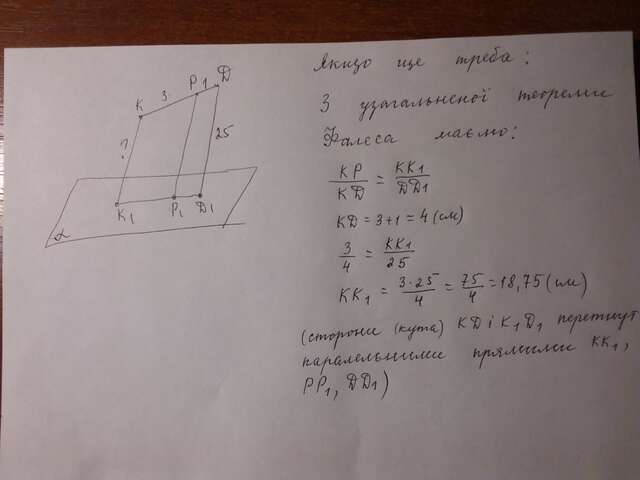 Якщо ще треба:
З узагальненої теореми
Фалеса маємо:
KP/KD = KK1/DD1
KD = 3+1 = 4 (см)
3/4 = KK1/25
KK1 = 3·25/4 = 75/4 = 18,75 (см)
(сторони (кута) KD і K1D1 перетнут
паралельними прямими KK1,
PP1, DD1)
K
3
P
1
D
?
25
K1
P1
D1
α